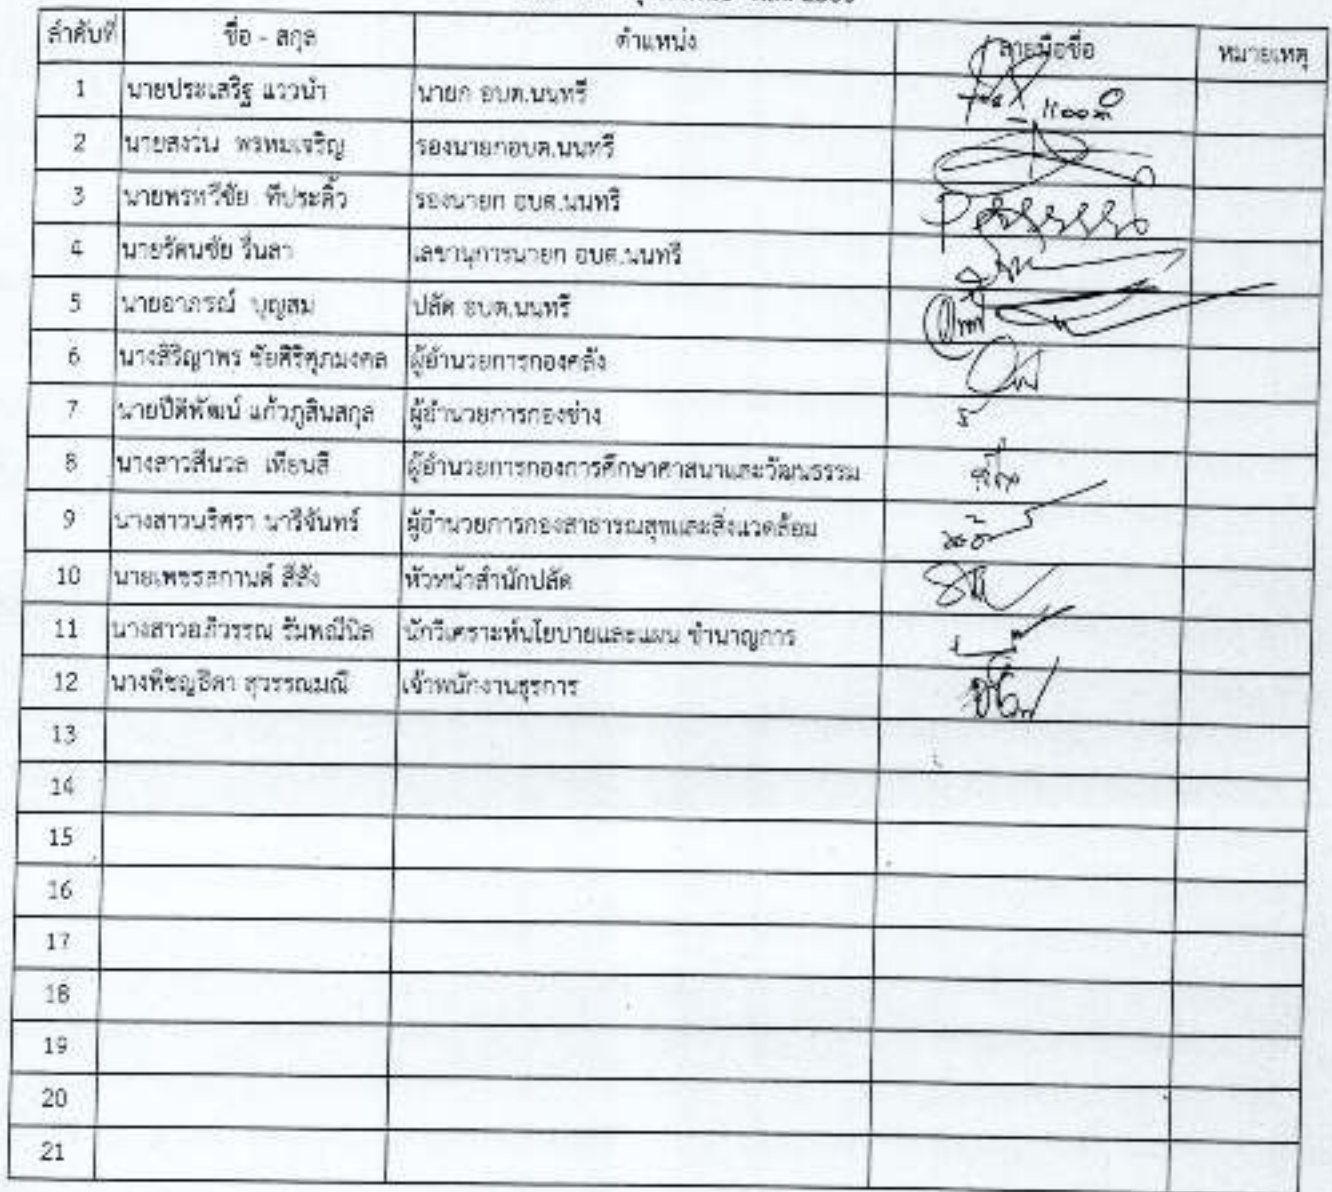 ลำดับที่ ชื่อ - สกุล ตำแหน่ง ลายมือชื่อ หมายเหตุ
1 นายประเสริฐ แววนำ นายก อบต.นนทรี
2 นายสงวน พรหมเจริญ รองนายกอบต.นนทรี
3 นายพรทวีชัย ทีประดิ้ว รองนายก อบต.นนทรี
4 นายรัตนชัย รื่นลา เลขานุการนายก อบต.นนทรี
5 นายอาภรณ์ บุญสม ปลัด อบต.นนทรี
6 นางสิริญาพร ชัยศิริศุภมงคล ผู้อำนวยการกองคลัง
7 นายปิติพัฒน์ แก้วภูสินสกุล ผู้อำนวยการกองช่าง
8 นางสาวสีนวล เทียนสี ผู้อำนวยการกองการศึกษาศาสนาและวัฒนธรรม
9 นางสาวนริศรา นารีจันทร์ ผู้อำนวยการกองสาธารณสุขและสิ่งแวดล้อม
10 นายเพชรสกานต์ สีสัง หัวหน้าสำนักปลัด
11 นางสาวอภิวรรณ นักวิเคราะห์นโยบายและแผน ชำนาญการ
12 นางพิชญธิดา สุวรรณมณี เจ้าพนักงานธุรการ
13
14
15
16
17
18
19
20
21